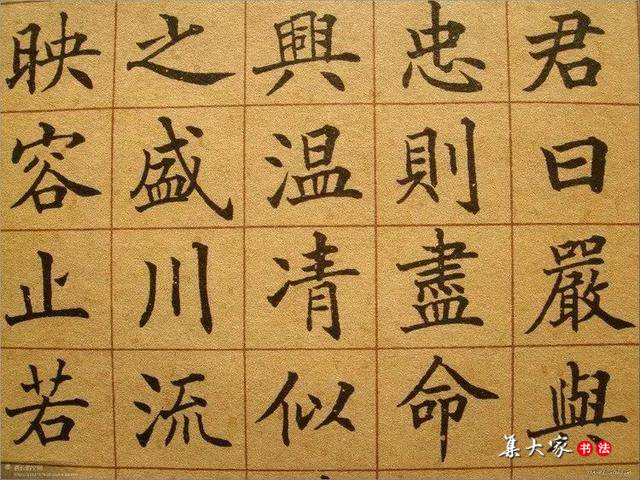 君曰嚴與
忠則盡命
興温凊似
之盛川流
映容止若
集大家书法